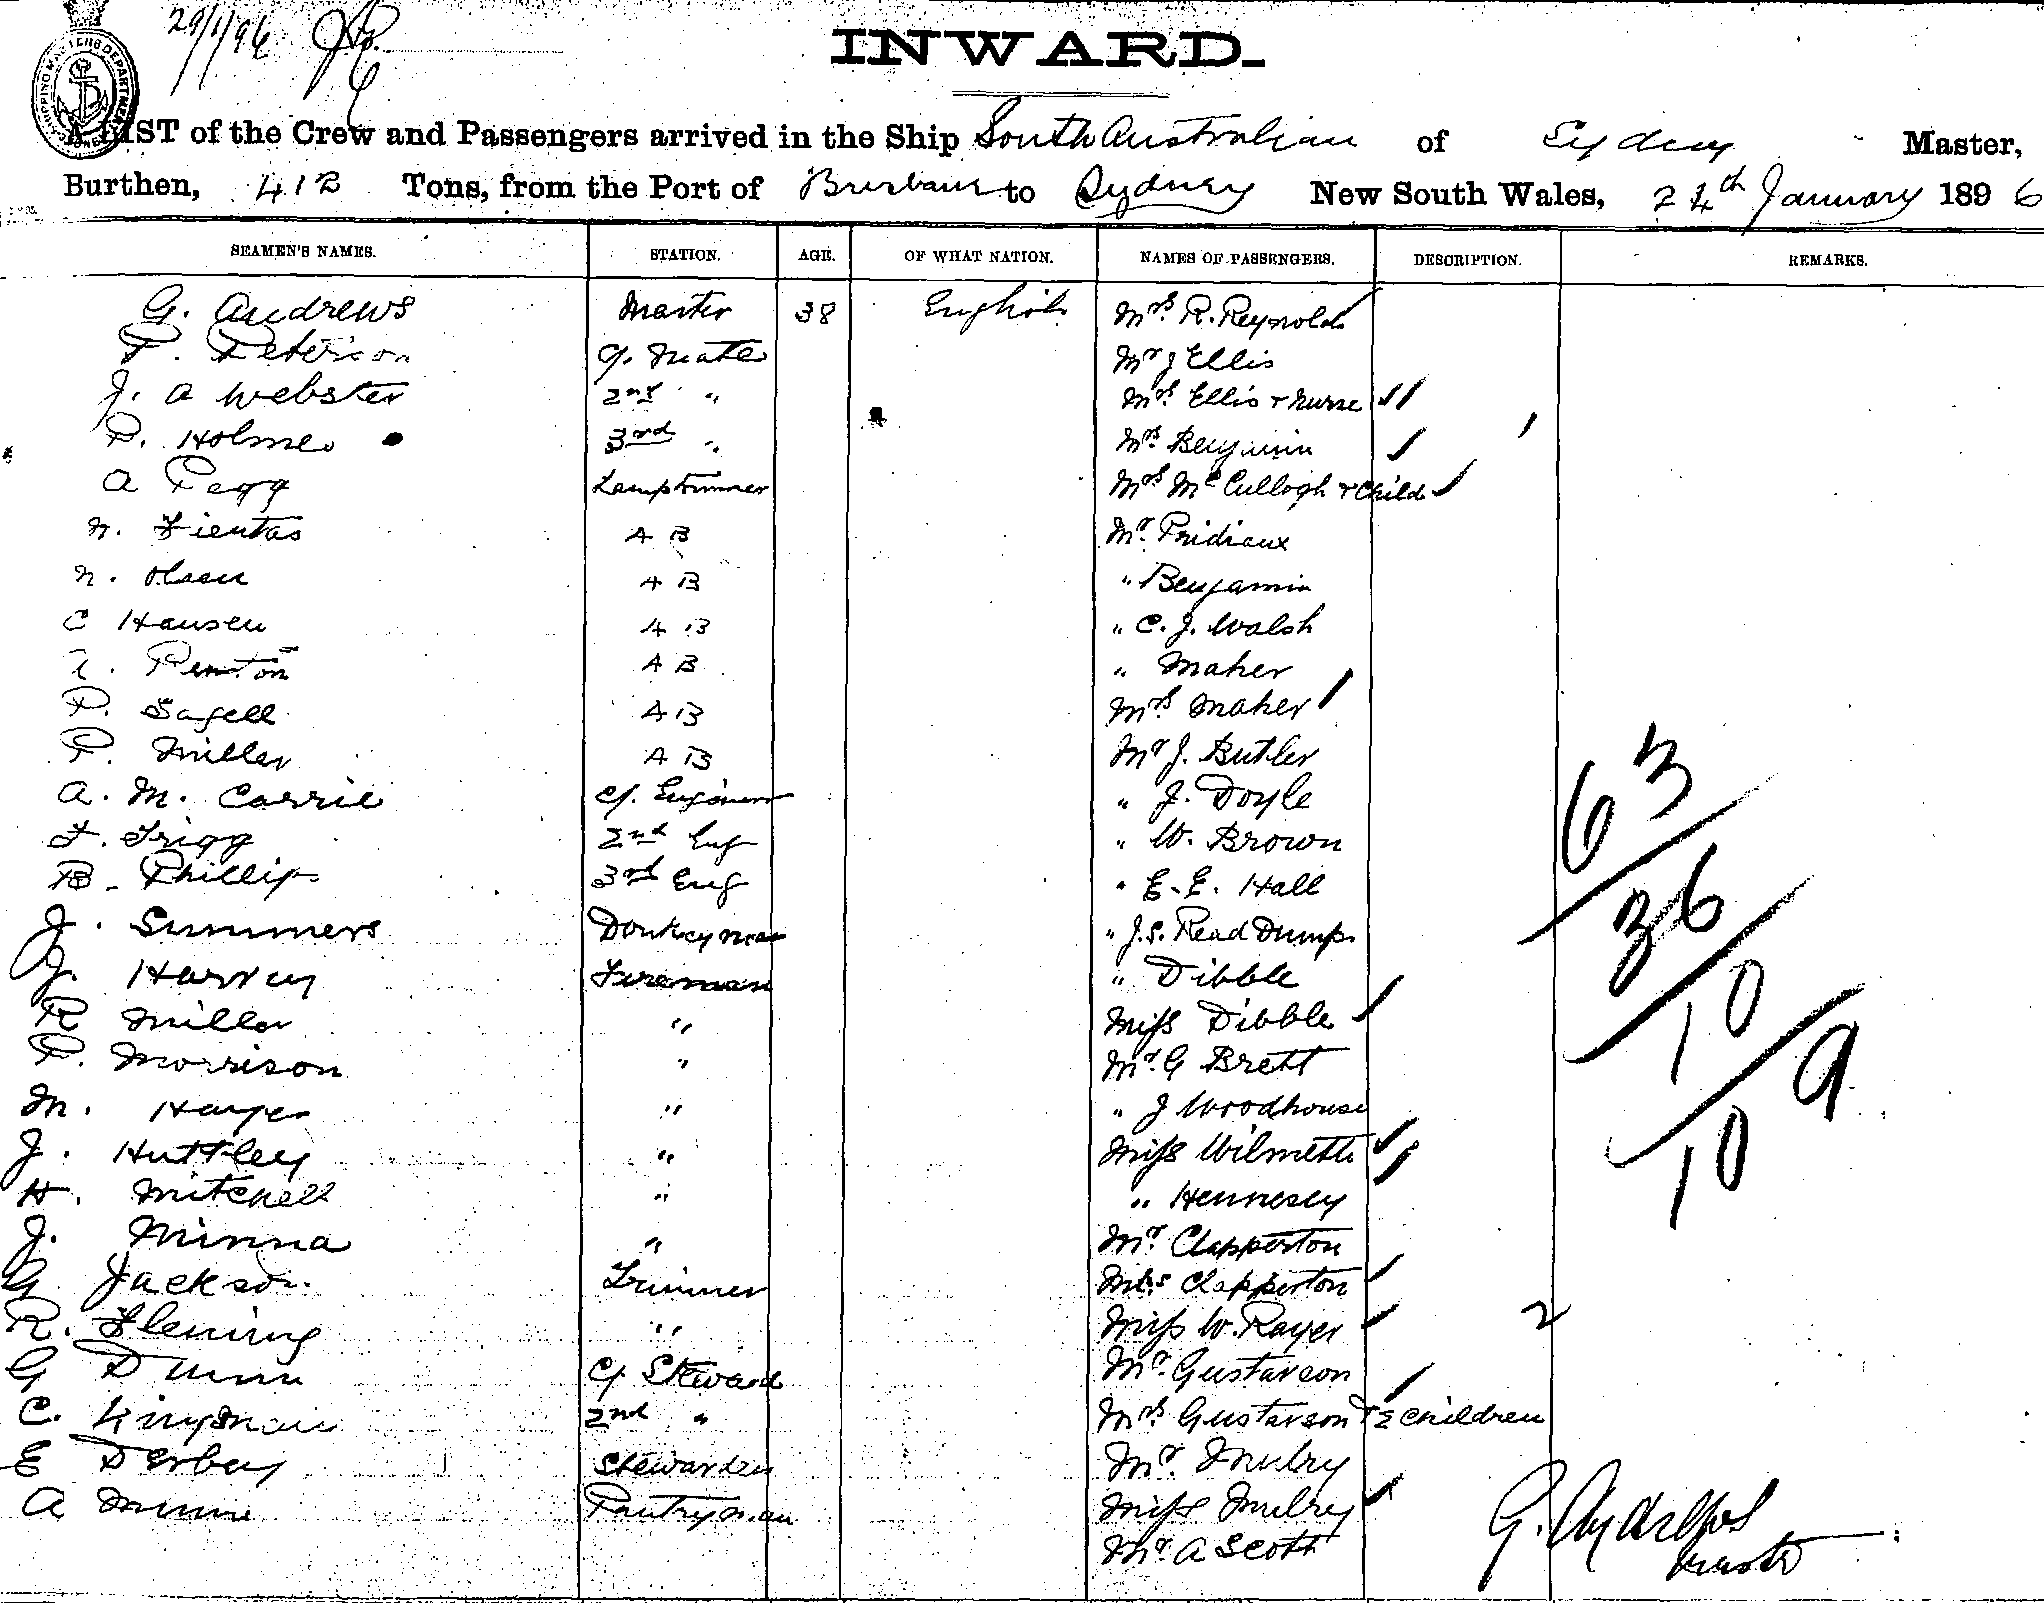 29/1/96
SHIPPING MASTERS DEPARTMENT
INWARD.
A LIST of the Crew and Passengers arrived in the Ship South Australian of Sydney Master,
Burthen, 412 Tons, from the Port of Brisbane to Sydney New South Wales, 24th January 1896
SEAMEN'S NAMES. STATION. AGE. OF WHAT NATION. NAMES OF PASSENGERS. DESCRIPTION. REMARKS.
G. Andrews Master 38 English Mrs R. Reynolds
P. Peterson C/. Mate Mr J Ellis
J. A Webster 2nd " Mrs Ellis + Nurse
P. Holmes 3rd " Mrs Benjamin
A Pegg Lamptrimmer Mrs McCullogh + Child
N. Fientas A B Mr Pridiaux
N. Olsen A B " Benjamin
C Hansen A B " C. J. Walsh
Penton A B " Maher
P. Sagell A B Mrs Maher
P. Miller A B Mr J. Butler
A. M. Carrie C/. Engineer " J. Doyle
F. Trigg 2nd Eng " W. Brown
B. Phillips 3rd Eng " E. E. Hall
J. Summers Donkeyman " J. S. Read Dump
J. Harvey Fireman " Dibble
R Miller " Miss Dibble
P. Morrison " Mr. G Brett
M. Harper " " J Woodhouse
J. Huttley " Miss Wilmett
H. Mitchell " " Hennesey
J. Minna " Mr. Clapperton
G Jackson Trimmer Mrs Clapperton
R. Fleming " Miss W. Rayer 2
G Dunn C/. Steward Mr. Gustavson
C. Kingsman 2nd " Mrs Gustavson + 2 children
E Derbey Stewardess Mr. Mulry
A Munn Pantryman Miss Mulry
Mr A Scott
63
36
10
9
10
G. Andrews
Master